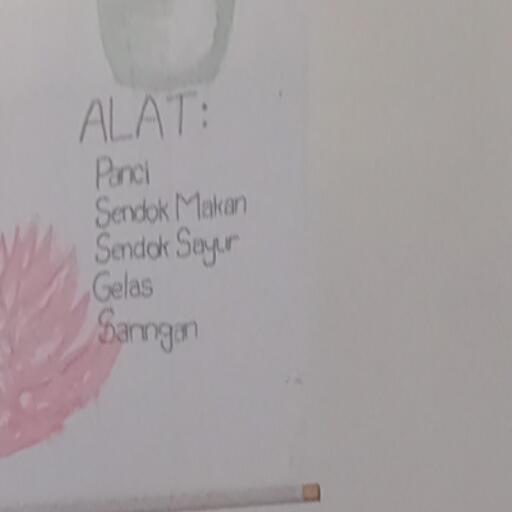 ALAT:
Panci
Sendok Makan
Sendok Sayur
Gelas
Sarıngan